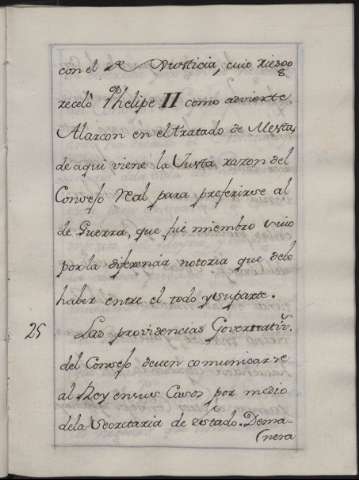 con el R. Justicia, cuio riesgo
receló Phelipe II como advierte
Alarcon en el tratado de Mesta,
de aqui viene la Justa razon del
Consejo Real para preferirse al
de Guerra, que fue miembro suio
por la diferencia notoria que debe
haber entre el todo y su parte.
25 Las providencias Governativs.
del Consejo deven comunicarse
al Rey en sus Casos por medio
de la Secretaria de estado. Dema-
(nera